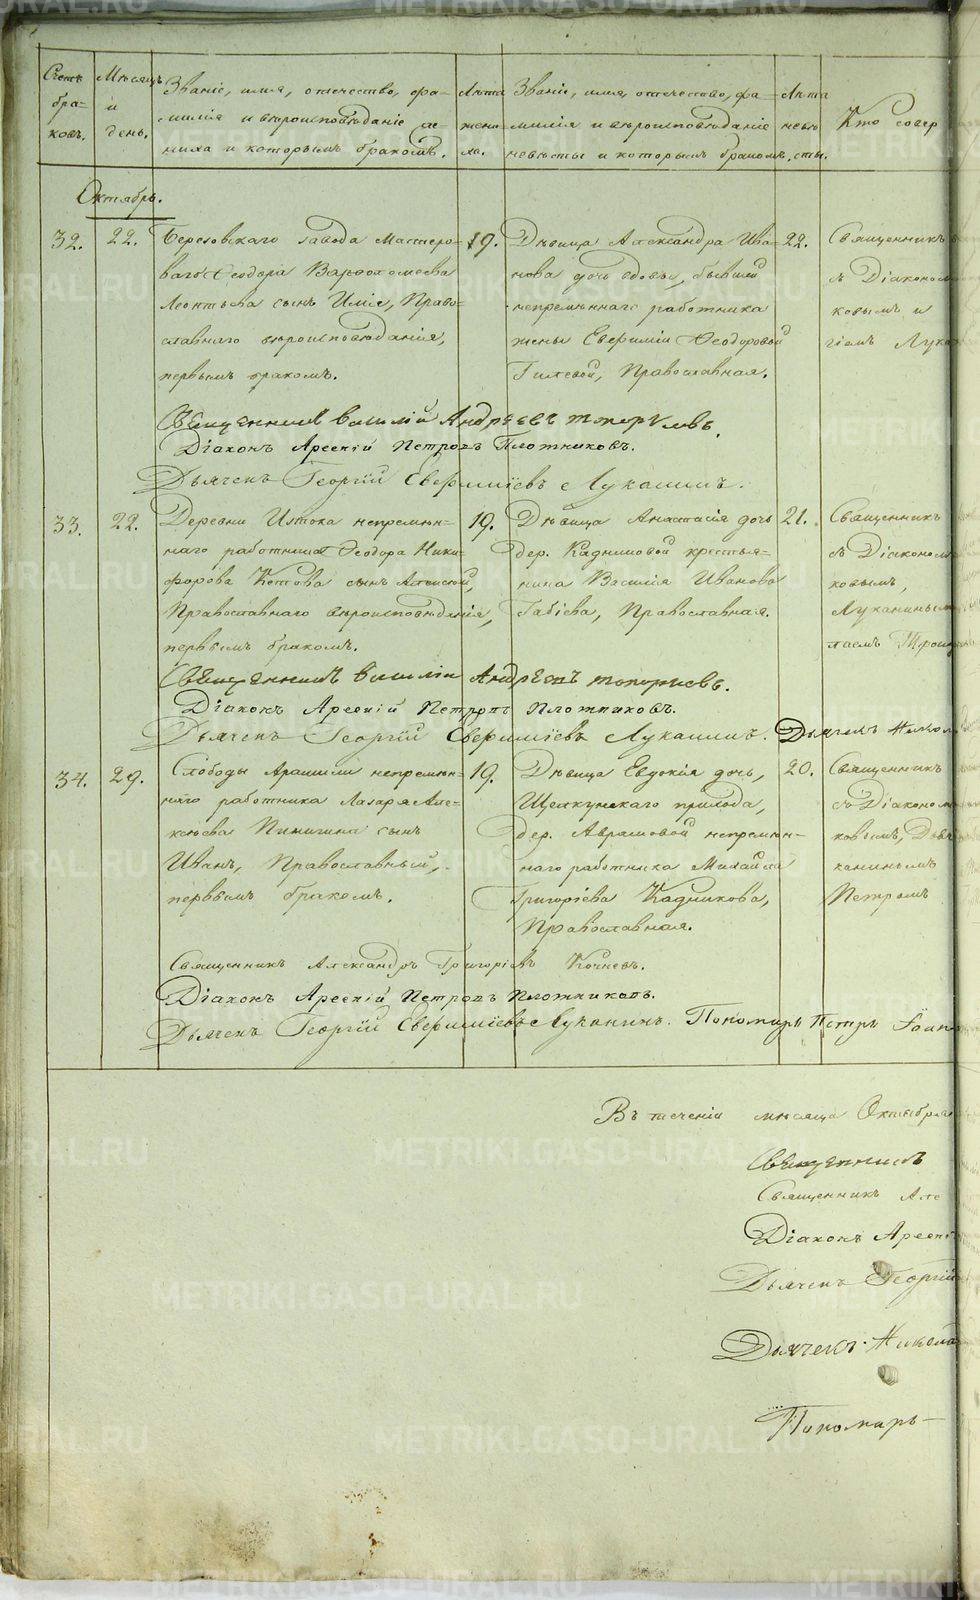 Счетъ бра-ковъ.
Мѣсяцъ и день.
Званіе, имя, отечество, фа-
милія и вѣроисповѣданіе же-
ниха и которымъ бракомъ.
Лѣта жени-ха.
Званіе, имя, отечество, фа-
милія и вѣроисповѣданіе
невѣсты и которымъ бракомъ.
Лѣта невѣ-сты.
Кто совер
Октябрь.
32. 22.
Березовскаго завода мастеро-
ваго Ѳеодора Варѳоломеева
Леонтьева сынъ Илія, Право-
славнаго вѣроисповѣданія,
первымъ бракомъ.
19.
Дѣвица Александра Ива-
нова дочь вдовы, бывшей
непремѣннаго работника
жены Евфиміи Ѳеодоровой
Гилевой, Православная.
22.
Священникъ
съ Діаконом
ковымъ и
гіемъ Лука
Священникъ Василій Андреевъ Топорковъ.
Діаконъ Арсеній Петровъ Плотниковъ.
Дьячекъ Георгій Евфиміевъ Луканинъ.
33. 22.
Деревни Истока непремѣн-
наго работника Ѳеодора Ники-
форова Котова сынъ Алексѣй,
Православнаго вѣроисповѣданія,
первымъ бракомъ.
19.
Дѣвица Анастасія дочь
дер. Кадниковой крестья-
нина Василія Иванова
Габіева, Православная.
21.
Священникъ
съ Діаконом
ковымъ,
Луканиным
Священникъ Василій Андреевъ Топорковъ.
Діаконъ Арсеній Петровъ Плотниковъ.
Дьячекъ Георгій Евфиміевъ Луканинъ. Дьячекъ Никол
34. 29.
Слободы Арамили непремѣн-
наго работника Лазаря Але-
ксѣева Пинигина сынъ
Иванъ, Православный,
первымъ бракомъ.
19.
Дѣвица Евдокія дочь,
Щелкунскаго прихода,
дер. Аврамовой непремѣн-
наго работника Михайла
Григоріева Кадникова,
Православная.
20.
Священникъ
съ Діаконом
ковымъ, Дья
канинымъ
Петромъ
Священникъ Александръ Григоріевъ Кочневъ.
Діаконъ Арсеній Петровъ Плотниковъ.
Дьячекъ Георгій Евфиміевъ Луканинъ. Пономарь Петръ Іоан
Въ теченіи мѣсяца Октября
Священникъ
Священникъ Але
Діаконъ Арсені
Дьячекъ Георгій
Дьячекъ Никола
Пономарь